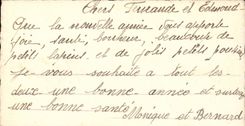 Chers Fernande et Edmond
Que la nouvelle année vous apporte
joie, santé, bonheur, beaucoup de
petits lapins et de jolis petits poussins
je vous souhaite à tout les
deux une bonne année et surtout
une bonne santé
Monique et Bernard